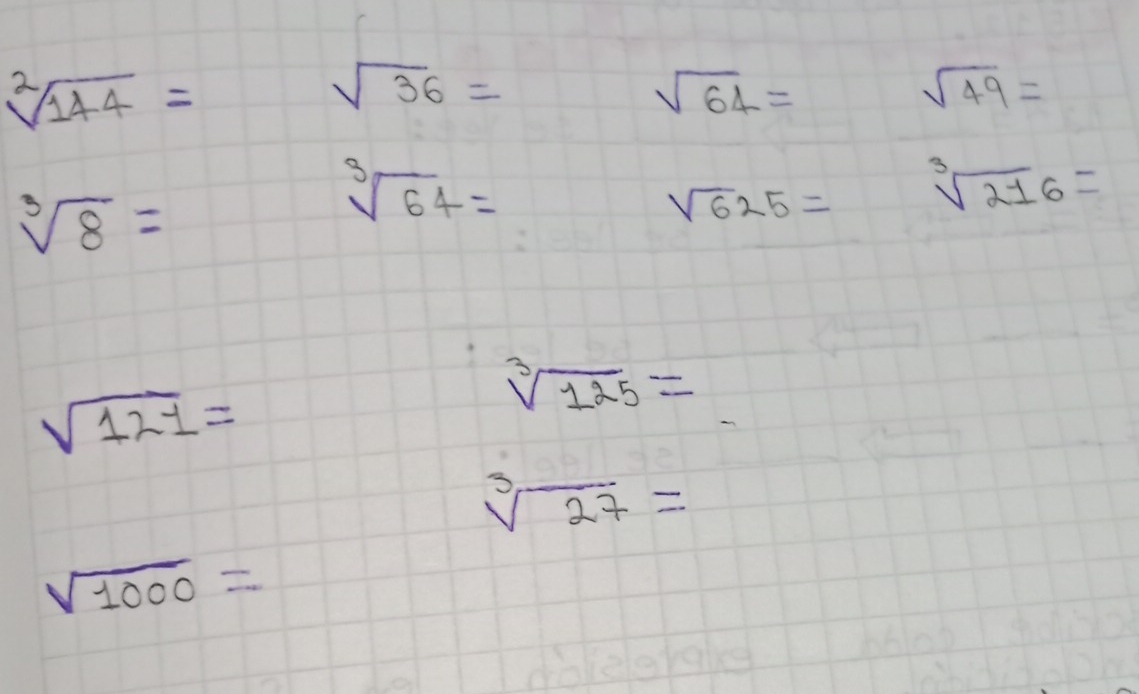 ²√144 = √36 = √64 = √49 =
³√8 = ³√64 = √625 = ³√216 =
√121 = ³√125 =
³√27 =
√1000 =